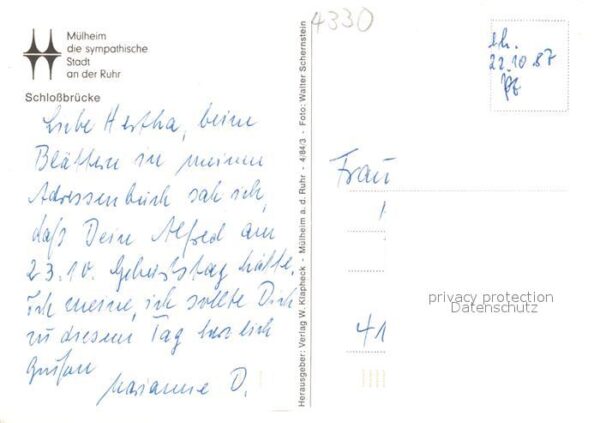 Mülheim
die sympathische
Stadt
an der Ruhr
Schloßbrücke
Liebe Hertha, beim
Blättern in meinem
Adressenbuch sah ich,
daß Dein Alfred am
23.10. Geburtstag hätte,
ich meine, ich sollte Dich
zu diesem Tag herzlich
grüßen
Marianne D.
Herausgeber: Verlag W. Klapheck - Mülheim a. d. Ruhr - 4/84/3 - Foto: Walter Schernstein
4330
22.10.87
Frau
41
privacy protection
Datenschutz